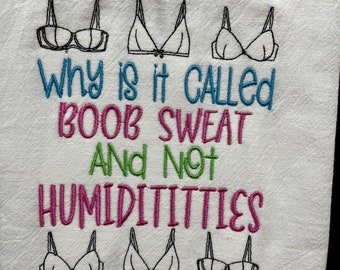 Why is it called
BOOB SWEAT
And Not
HUMIDITITTIES